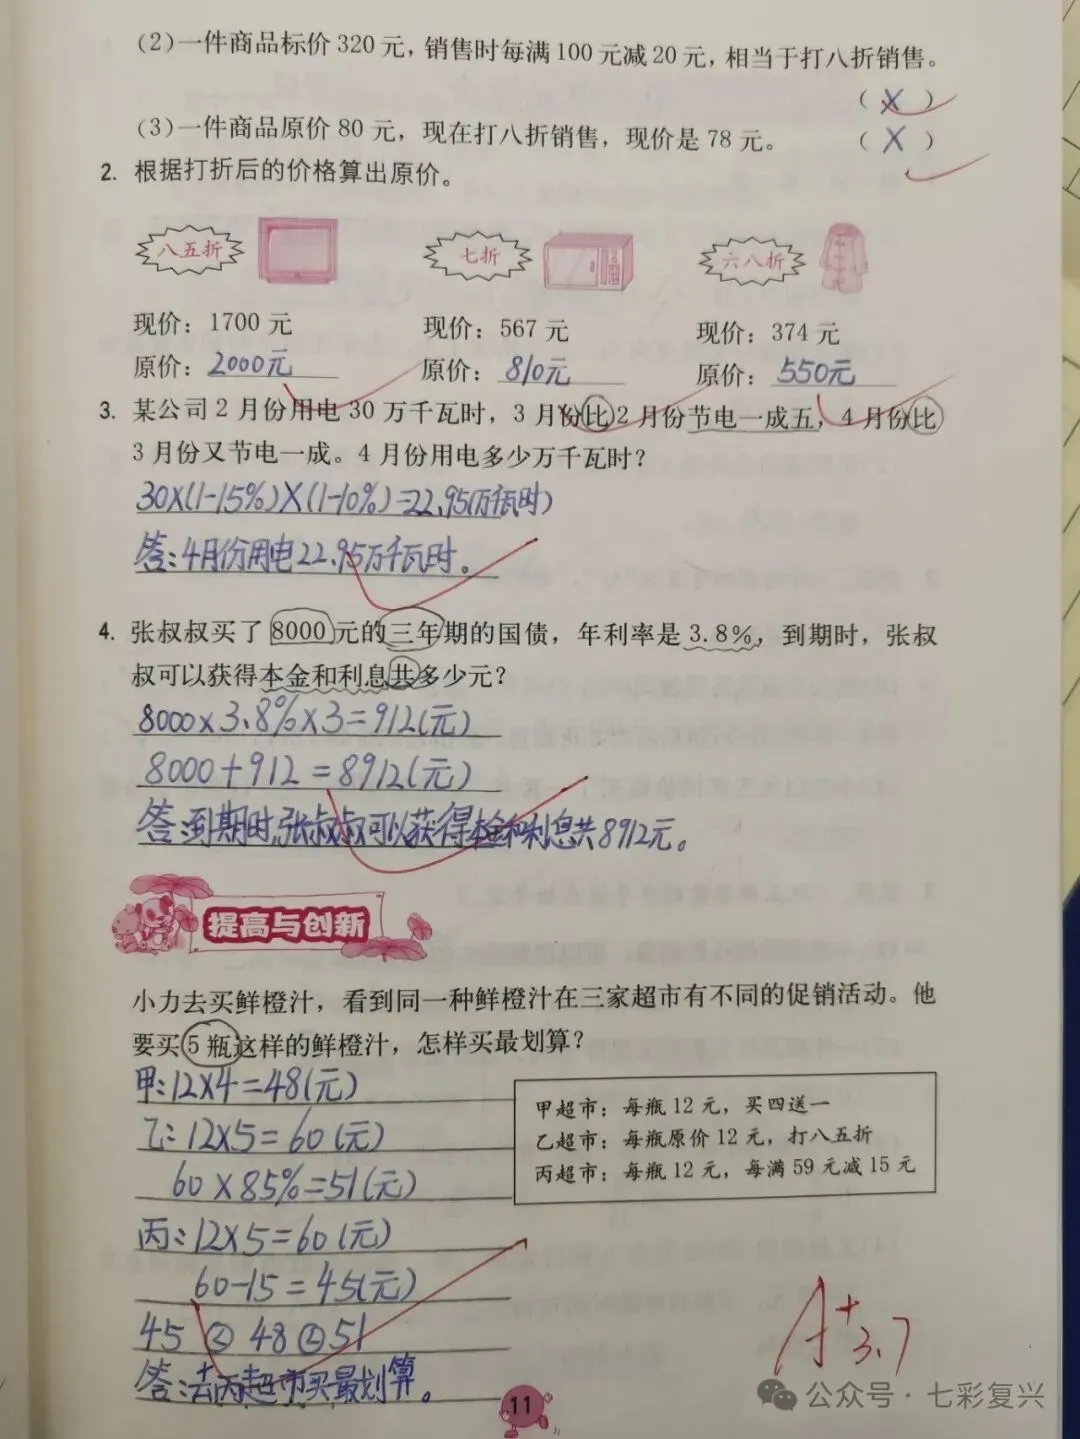 (2)一件商品标价320元,销售时每满100元减20元,相当于打八折销售。
(X)
(3)一件商品原价80元,现在打八折销售,现价是78元。 (X)
2. 根据打折后的价格算出原价。
八五折 七折 六八折
现价:1700元 现价:567元 现价:374元
原价:2000元 原价:810元 原价:550元
3. 某公司2月份用电30万千瓦时,3月份比2月份节电一成五,4月份比
3月份又节电一成。4月份用电多少万千瓦时?
30×(1-15%)×(1-10%)=22.95(万千瓦时)
答:4月份用电22.95万千瓦时。
4. 张叔叔买了8000元的三年期的国债,年利率是3.8%,到期时,张叔
叔可以获得本金和利息共多少元?
8000×3.8%×3=912(元)
8000+912=8912(元)
答:到期时,张叔叔可以获得本金和利息共8912元。
提高与创新
小力去买鲜橙汁,看到同一种鲜橙汁在三家超市有不同的促销活动。他
要买5瓶这样的鲜橙汁,怎样买最划算?
甲:12×4=48(元)
乙:12×5=60(元)
60×85%=51(元)
丙:12×5=60(元)
60-15=45(元)
45<48<51
答:去丙超市买最划算。
甲超市:每瓶12元,买四送一
乙超市:每瓶原价12元,打八五折
丙超市:每瓶12元,每满59元减15元
A+
3.7
11
公众号·七彩复兴